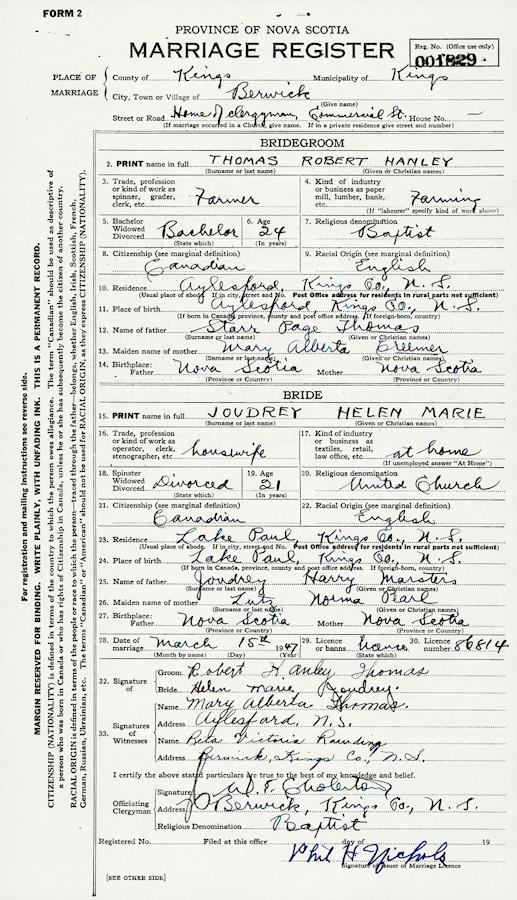 FORM 2
PROVINCE OF NOVA SCOTIA
MARRIAGE REGISTER
Reg. No. (Office use only)
001829
PLACE OF MARRIAGE
County of Kings Municipality of Kings
City, Town or Village of Berwick
(Give name)
Street or Road Home of clergyman, Commercial St. House No. —
(If marriage occurred in a Church, give name. If in a private residence give street and number)
BRIDEGROOM
2. PRINT name in full THOMAS ROBERT HANLEY
(Surname or last name) (Given or Christian names)
3. Trade, profession or kind of work as spinner, grader, clerk, etc. Farmer
4. Kind of industry or business as paper mill, lumber, bank, etc. Farming
(If "labourer" specify kind of work above)
5. Bachelor Widowed Divorced Bachelor
(State which)
6. Age 24
(In years)
7. Religious denomination Baptist
8. Citizenship (see marginal definition) Canadian
9. Racial Origin (see marginal definition) English
10. Residence Aylesford, Kings Co., N. S.
(Usual place of abode. If in city, street and No. Post Office address for residents in rural parts not sufficient)
11. Place of birth Aylesford Kings Co., N. S.
(If born in Canada, county, and post office address. If foreign-born, country)
12. Name of father Starr Page Thomas
(Surname or last name) (Given or Christian names)
13. Maiden name of mother Mary Alberta Creemer
(Surname or last name) (Given or Christian names)
14. Birthplace: Father Nova Scotia Mother Nova Scotia
(Province or Country) (Province or Country)
BRIDE
15. PRINT name in full JOUDREY HELEN MARIE
(Surname or last name) (Given or Christian names)
16. Trade, profession or kind of work as operator, clerk, stenographer, etc. housewife
17. Kind of industry or business as textiles, retail, law office, etc. at home
(If unemployed answer "At Home")
18. Spinster Widowed Divorced Divorced
(State which)
19. Age 21
(In years)
20. Religious denomination United Church
21. Citizenship (see marginal definition) Canadian
22. Racial Origin (see marginal definition) English
23. Residence Lake Paul, Kings Co., N. S.
(Usual place of abode. If in city, street and No. Post Office address for residents in rural parts not sufficient)
24. Place of birth Lake Paul, Kings Co., N. S.
(If born in Canada, county and post office address. If foreign-born, country)
25. Name of father Joudrey Harry Marsters
(Surname or last name) (Given or Christian names)
26. Maiden name of mother Lutz Norma Pearl
(Surname or last name) (Given or Christian names)
27. Birthplace: Father Nova Scotia Mother Nova Scotia
(Province or Country) (Province or Country)
28. Date of marriage March 15th 1947
(Month by name) (Day) (Year)
29. Licence or banns licence
(State which)
30. Licence number 86814
32. Signature of
Groom Robert Hanley Thomas
Bride Helen Marie Joudrey.
33. Signatures of Witnesses
Name Mary Alberta Thomas.
Address Aylesford, N.S.
Name Reta Victoria Rawding
Address Berwick, Kings Co., N. S.
I certify the above stated particulars are true to the best of my knowledge and belief.
Officiating Clergyman
Signature
Address Berwick, Kings Co., N. S.
Religious Denomination Baptist
Registered No. Filed at this office day of 19
Phil H Nichols
Signature of Issuer of Marriage Licence
[SEE OTHER SIDE]
For registration and mailing instructions see reverse side.
MARGIN RESERVED FOR BINDING. WRITE PLAINLY, WITH UNFADING INK. THIS IS A PERMANENT RECORD.
CITIZENSHIP (NATIONALITY) is defined in terms of the country to which the person owes allegiance. The term "Canadian" should be used as descriptive of
a person who was born in Canada or who has rights of Citizenship in Canada, unless he or she has subsequently become the citizen of another country.
RACIAL ORIGIN is defined in terms of the people or race to which the person—traced through the father—belongs, whether English, Irish, Scottish, French,
German, Russian, Ukrainian, etc. The terms "Canadian" or "American" should not be used for RACIAL ORIGIN, as they express CITIZENSHIP (NATIONALITY).